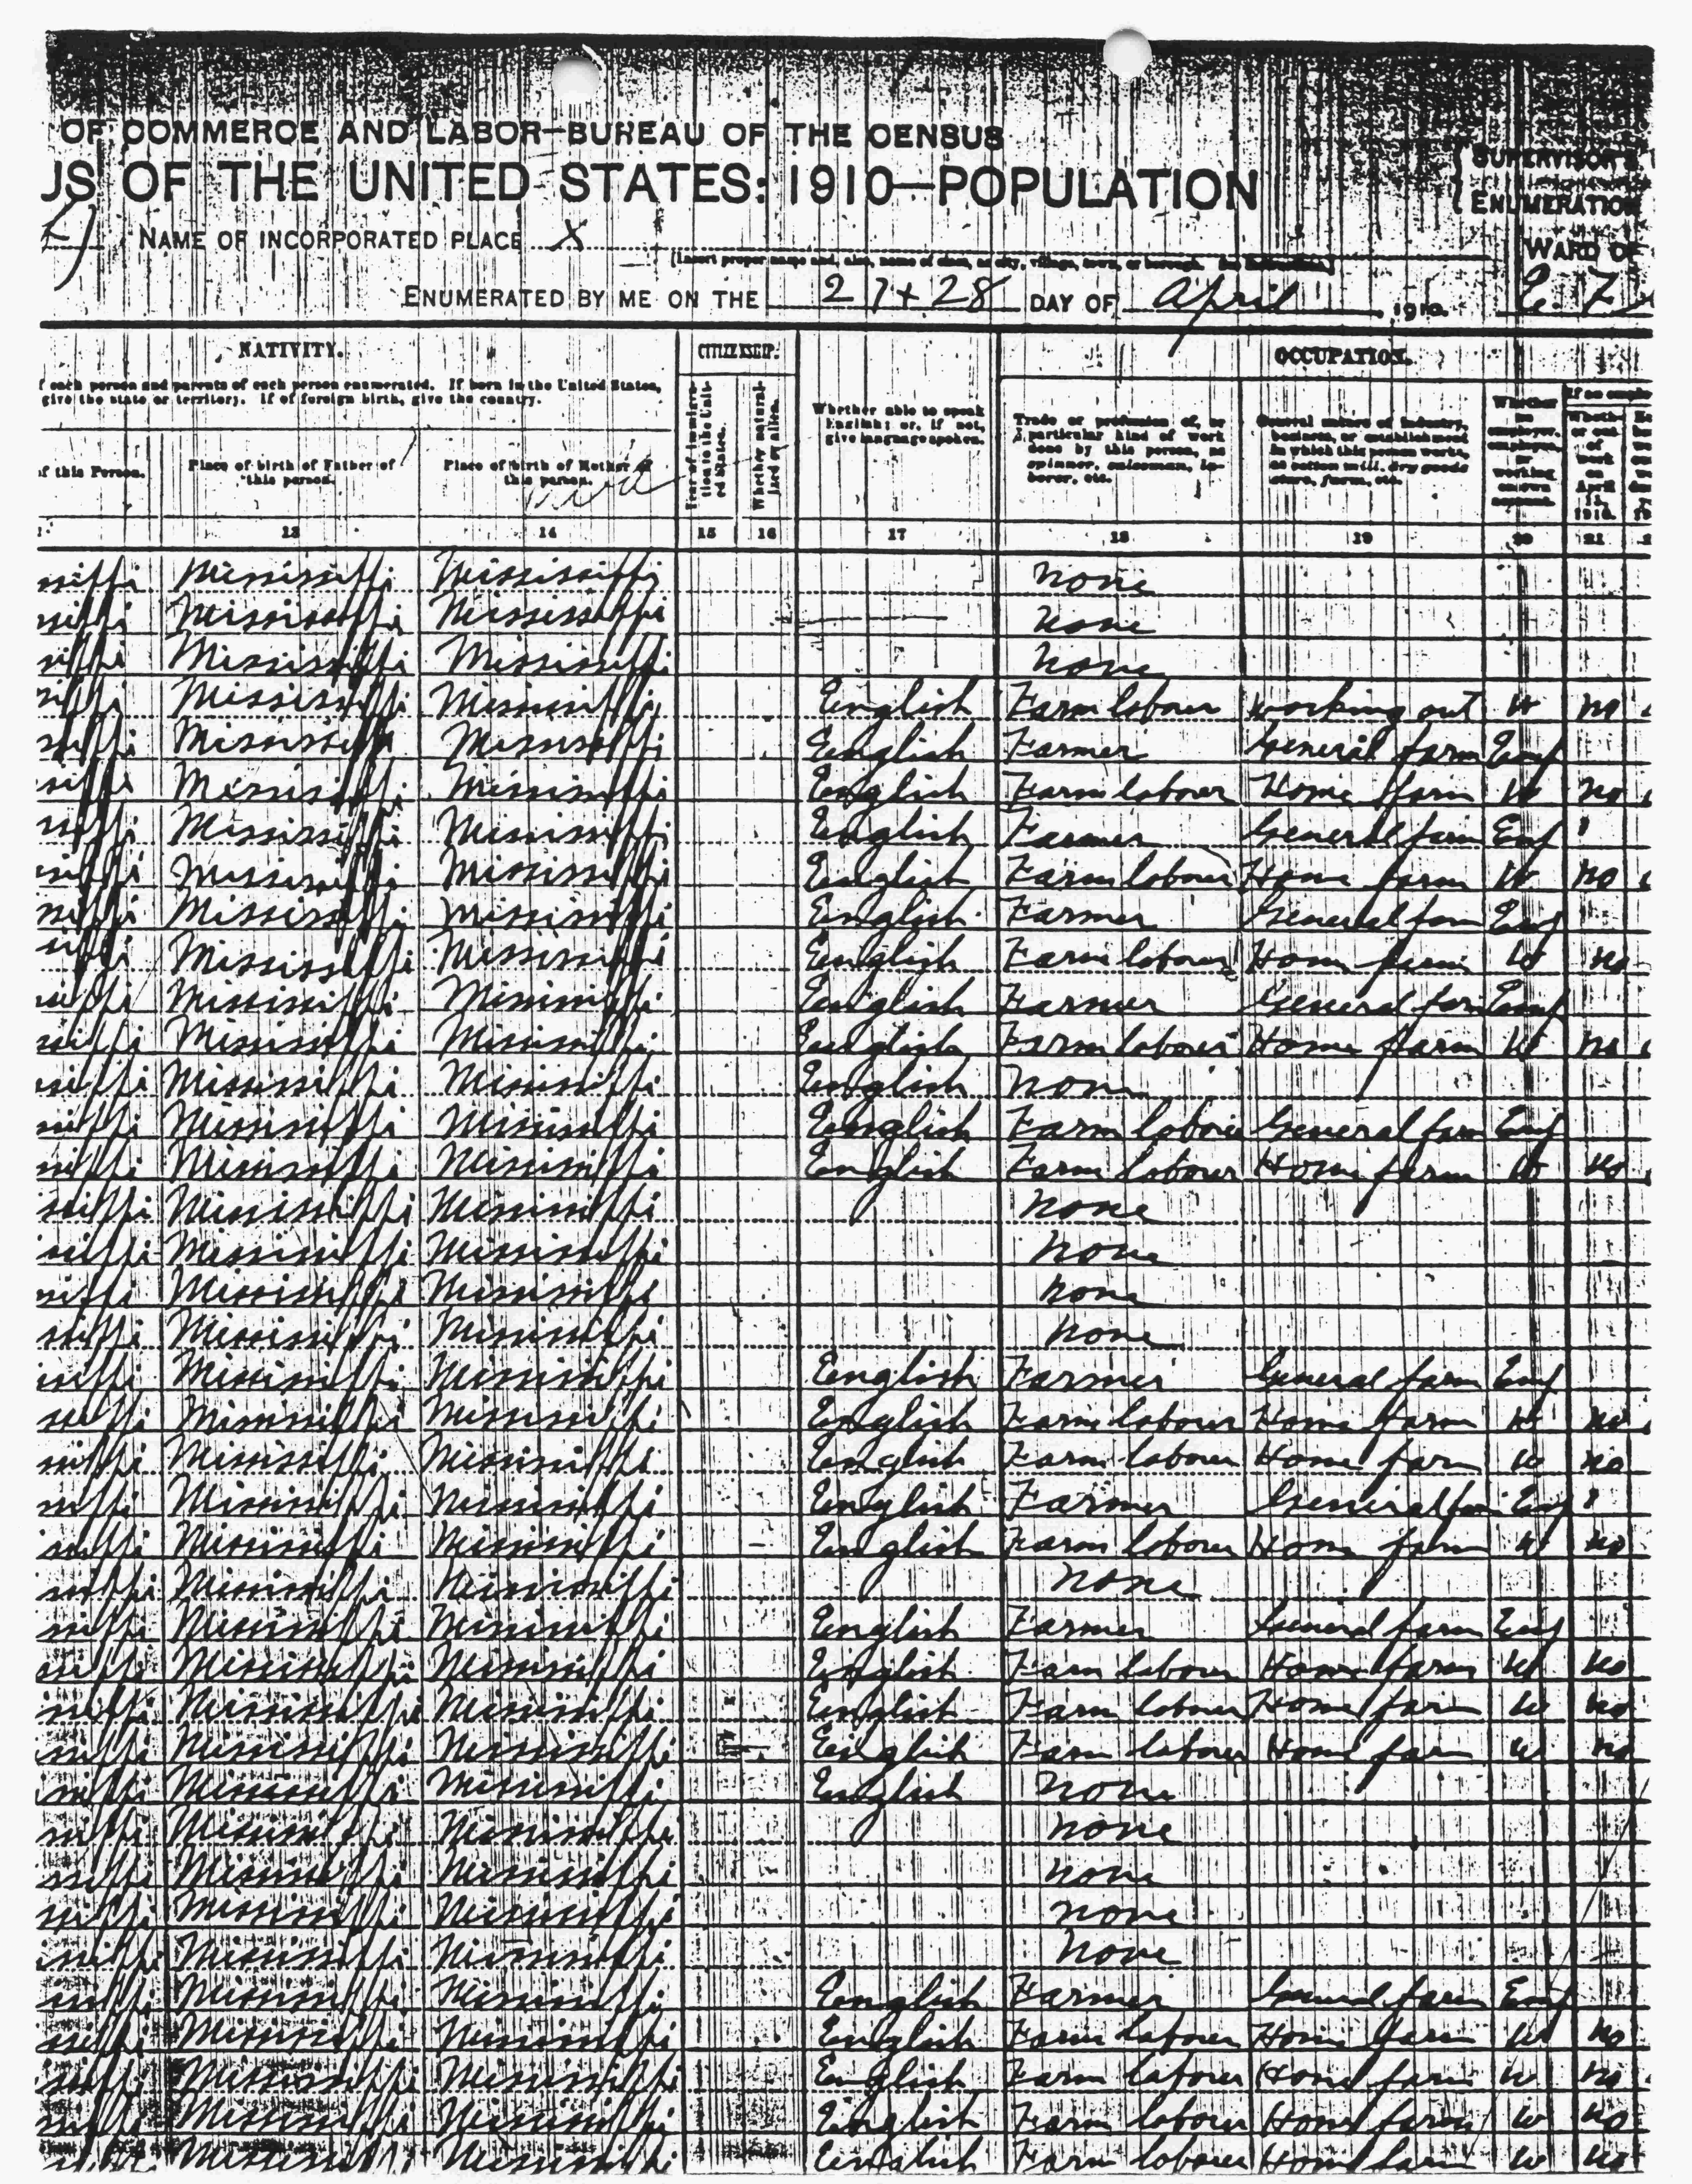 OF COMMERCE AND LABOR—BUREAU OF THE CENSUS
US OF THE UNITED STATES: 1910—POPULATION
SUPERVISOR'S
ENUMERATION
NAME OF INCORPORATED PLACE X
WARD OF
[Insert proper name and, also, name of class, as city, village, town, or borough. See instructions.]
ENUMERATED BY ME ON THE 27+28 DAY OF April, 1910.
NATIVITY. CITIZENSHIP. OCCUPATION.
f each person and parents of each person enumerated. If born in the United States,
give the state or territory. If of foreign birth, give the country.
of this Person.
Place of birth of Father of
this person.
Place of birth of Mother of
this person.
Year of immigra-
tion to the Unit-
ed States.
Whether natural-
ized or alien.
Whether able to speak
English; or, if not,
give language spoken.
Trade or profession of, or
particular kind of work
done by this person, as
spinner, salesman, la-
borer, etc.
General nature of industry,
business, or establishment
in which this person works,
as cotton mill, dry goods
store, farm, etc.
Whether
an
employer,
employee,
or
working
on own
account.
If an emplo
Wheth-
er out
of
work
on
April
15,
1910.
13 14 15 16 17 18 19 20 21
ssippi Mississippi Mississippi none
ssippi Mississippi Mississippi none
ssippi Mississippi Mississippi none
ssippi Mississippi Mississippi English Farm laborer working out W no
ssippi Mississippi Mississippi English Farmer General farm Emp
ssippi Mississippi Mississippi English Farm laborer Home farm W no
ssippi Mississippi Mississippi English Farmer General farm Emp
ssippi Mississippi Mississippi English Farm laborer Home farm W no
ssippi Mississippi Mississippi English Farmer General farm Emp
ssippi Mississippi Mississippi English Farm laborer Home farm W no
ssippi Mississippi Mississippi English Farmer General farm Emp
ssippi Mississippi Mississippi English Farm laborer Home farm W no
ssippi Mississippi Mississippi English none
ssippi Mississippi Mississippi English Farm laborer General farm Emp
ssippi Mississippi Mississippi English Farm laborer Home farm W no
ssippi Mississippi Mississippi none
ssippi Mississippi Mississippi none
ssippi Mississippi Mississippi none
ssippi Mississippi Mississippi none
ssippi Mississippi Mississippi English Farmer General farm Emp
ssippi Mississippi Mississippi English Farm laborer Home farm W no
ssippi Mississippi Mississippi English Farm laborer Home farm W no
ssippi Mississippi Mississippi English Farmer General farm Emp
ssippi Mississippi Mississippi English Farm laborer Home farm W no
ssippi Mississippi Mississippi none
ssippi Mississippi Mississippi English Farmer General farm Emp
ssippi Mississippi Mississippi English Farm laborer Home farm W no
ssippi Mississippi Mississippi English Farm laborer Home farm W no
ssippi Mississippi Mississippi English Farm laborer Home farm W no
ssippi Mississippi Mississippi English none
ssippi Mississippi Mississippi none
ssippi Mississippi Mississippi none
ssippi Mississippi Mississippi none
ssippi Mississippi Mississippi none
ssippi Mississippi Mississippi English Farmer General farm Emp
ssippi Mississippi Mississippi English Farm laborer Home farm W no
ssippi Mississippi Mississippi English Farm laborer Home farm W no
ssippi Mississippi Mississippi English Farm laborer Home farm W no
ssippi Mississippi Mississippi English Farm laborer Home farm W no